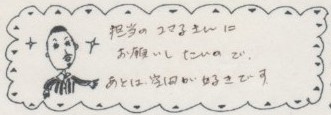 担当のコマるさんに
お願いしたいので、
あとは 空白が好きです